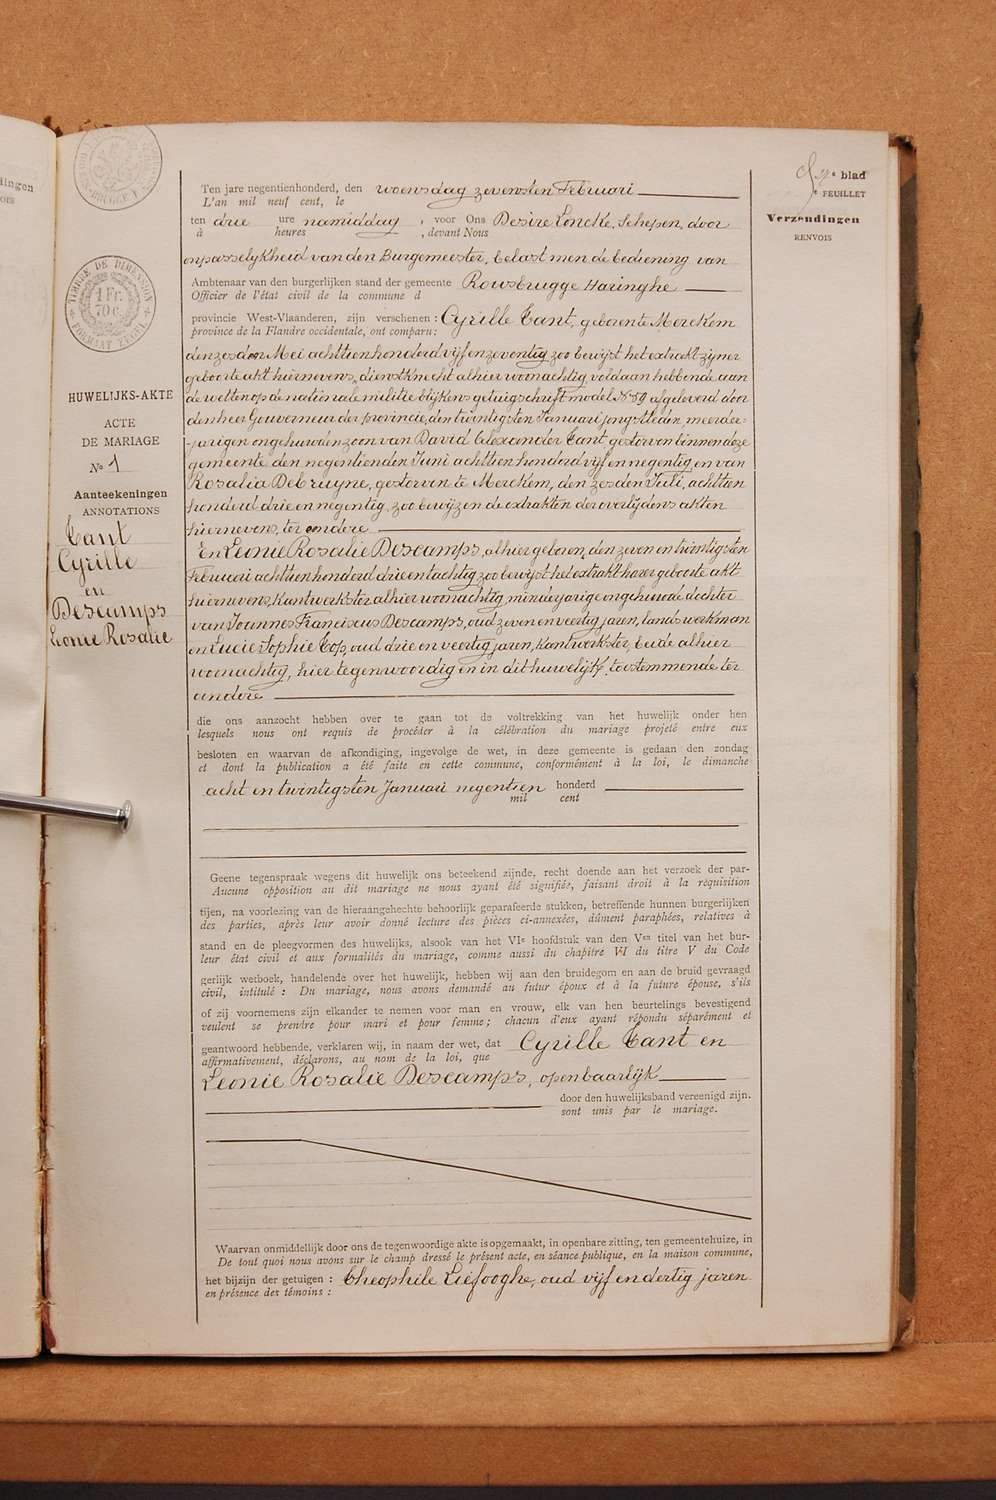 blad
FEUILLET
Verzendingen
RENVOIS
TIMBRE DE DIMENSION
1 Fr.
70 c.
FORMAAT ZEGEL
HUWELIJKS-AKTE
ACTE
DE MARIAGE
No 1
Aanteekeningen
ANNOTATIONS
Tant
Cyrille
en
Descamps
Leonie Rosalie
Ten jare negentienhonderd, den woensdag zevensten Februari
L'an mil neuf cent, le
ten drie ure namiddag, voor Ons Desiré Loncke, Schepen, door
à heures , devant Nous
onpasselijkheid van den Burgemeester, belast men de bediening van
Ambtenaar van den burgerlijken stand der gemeente Rousbrugge Haringhe
Officier de l'état civil de la commune d
provincie West-Vlaanderen, zijn verschenen: Cyrille Tant, geboren te Merckem
province de la Flandre occidentale, ont comparu:
den zesden Mei achttien honderd vijf en zeventig zoo bewijst het extrakt zijner
geboorte akt hiernevens, dienstknecht alhier woonachtig voldaan hebbende aan
de wetten op de nationale militie blijkens getuigschrift model afgeleverd door
den heer Gouverneur der provincie, den twintigsten Januari jongstleden, meerder-
-jarigen ongehuwden zoon van David Alexander Tant, gestorven binnen deze
gemeente den negentienden Juni achttien honderd vijf en negentig, en van
Rosalia Debruyne, gestorven te Merckem, den zesden Juli, achttien
honderd drie en negentig, zoo bewijzen de extrakten der overlijdens akten
hiernevens, ter eendere
En Leonie Rosalie Descamps, alhier geboren, den zeven en twintigsten
Februari achttien honderd drie en tachtig zoo bewijst het extrakt harer geboorte akt
hiernevens, Kantwerkster alhier woonachtig minderjarige ongehuwde dochter
van Joannes Franciscus Descamps, oud zeven en veertig jaren, landswerkman
en Lucie Sophie Cop, oud drie en veertig jaren, Kantwerkster, beide alhier
woonachtig, hier tegenwoordig en in dit huwelijk toestemmende ter
andere
die ons aanzocht hebben over te gaan tot de voltrekking van het huwelijk onder hen
lesquels nous ont requis de procéder à la célébration du mariage projeté entre eux
besloten en waarvan de afkondiging, ingevolge de wet, in deze gemeente is gedaan den zondag
et dont la publication a été faite en cette commune, conformément à la loi, le dimanche
acht en twintigsten Januari negentien honderd
mil cent
Geene tegenspraak wegens dit huwelijk ons beteekend zijnde, recht doende aan het verzoek der par-
Aucune opposition au dit mariage ne nous ayant été signifiée, faisant droit à la réquisition
tijen, na voorlezing van de hieraangehechte behoorlijk geparafeerde stukken, betreffende hunnen burgerlijken
des parties, après leur avoir donné lecture des pièces ci-annexées, dûment paraphées, relatives à
stand en de pleegvormen des huwelijks, alsook van het VIe hoofdstuk van den Ven titel van het bur-
leur état civil et aux formalités du mariage, comme aussi du chapitre VI du titre V du Code
gerlijk wetboek, handelende over het huwelijk, hebben wij aan den bruidegom en aan de bruid gevraagd
civil, intitulé : Du mariage, nous avons demandé au futur époux et à la future épouse, s'ils
of zij voornemens zijn elkander te nemen voor man en vrouw, elk van hen beurtelings bevestigend
veulent se prendre pour mari et pour femme; chacun d'eux ayant répondu séparément et
geantwoord hebbende, verklaren wij, in naam der wet, dat Cyrille Tant en
affirmativement, déclarons, au nom de la loi, que
Leonie Rosalie Descamps, openbaarlijk
door den huwelijksband vereenigd zijn.
sont unis par le mariage.
Waarvan onmiddellijk door ons de tegenwoordige akte is opgemaakt, in openbare zitting, ten gemeentehuize, in
De tout quoi nous avons sur le champ dressé le présent acte, en séance publique, en la maison commune,
het bijzijn der getuigen : Theophile Liefooghe, oud vijf en dertig jaren
en présence des témoins :